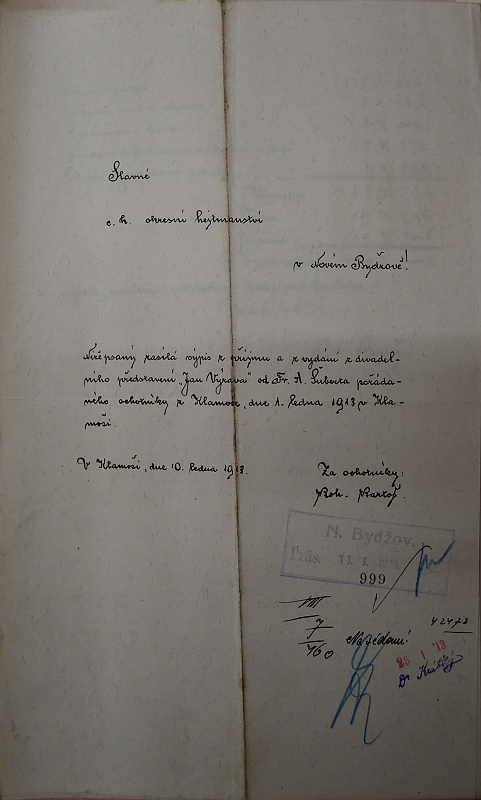 Slavné
c. k. okresní hejtmanství
v Novém Bydžově!
Níže psaný zasílá výpis z příjmu a z vydání z divadel-
ního představení „Jan Výrava" od Fr. A. Šuberta pořáda-
ného ochotníky z Klamoše, dne 1. ledna 1913 v Kla-
moši.
V Klamoši, dne 10. ledna 1913.
Za ochotníky:
Boh. Bartoš.
N. Bydžov.
Präs. 11. 1.
999
VIII
7
760
42473
25 1 13
Dr